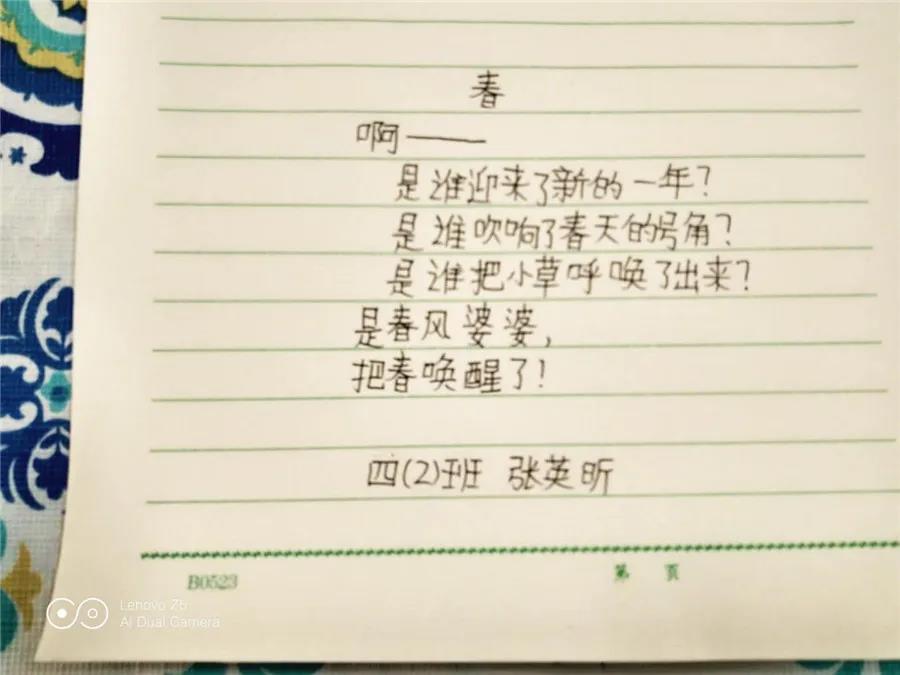 春
啊——
是谁迎来了新的一年?
是谁吹响了春天的号角?
是谁把小草呼唤了出来?
是春风婆婆,
把春唤醒了!
四(2)班 张英昕
B0523 第 页
Lenovo Z5
AI Dual Camera